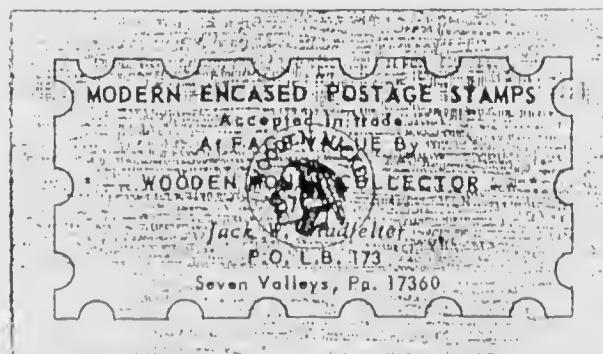 MODERN ENCASED POSTAGE STAMPS
Accepted in trade
At FACE VALUE By
WOODEN MONEY COLLECTOR
Jack
P.O. L.B. 173
Seven Valleys, Pa. 17360
WOODEN NICKEL